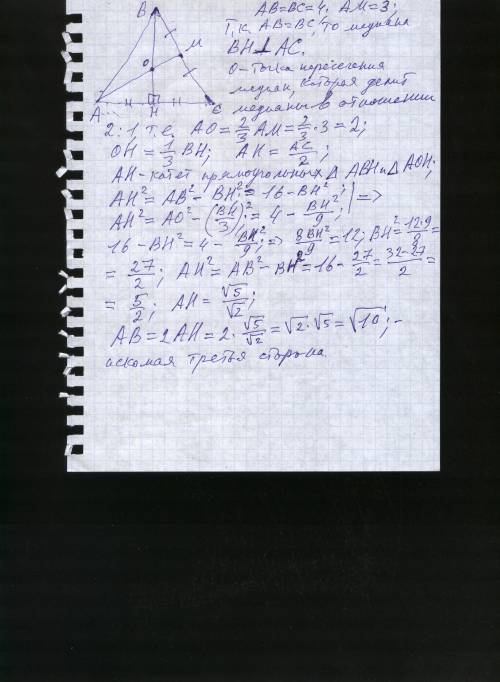 B
M
O
A
H
C
AB=BC=4; AM=3;
Т.к. AB=BC, то медиана
BH⊥AC.
O-точка пересечения
медиан, которая делит
медианы в отношении
2:1 т.е. AO=2/3 AM=2/3·3=2;
OH=1/3 BH; AH=AC/2;
AH-катет прямоугольных Δ ABH и Δ AOH;
AH²=AB²-BH²=16-BH²; | =>
AH²=AO²-(BH/3)²=4-BH²/9;
16-BH²=4-BH²/9; => 8BH²/9=12; BH²=12·9/8=
=27/2; AH²=AB²-BH²=16-27/2=32-27/2=
=5/2; AH=√5/√2;
AB=2AH=2·√5/√2=√2·√5=√10; -
искомая третья сторона.